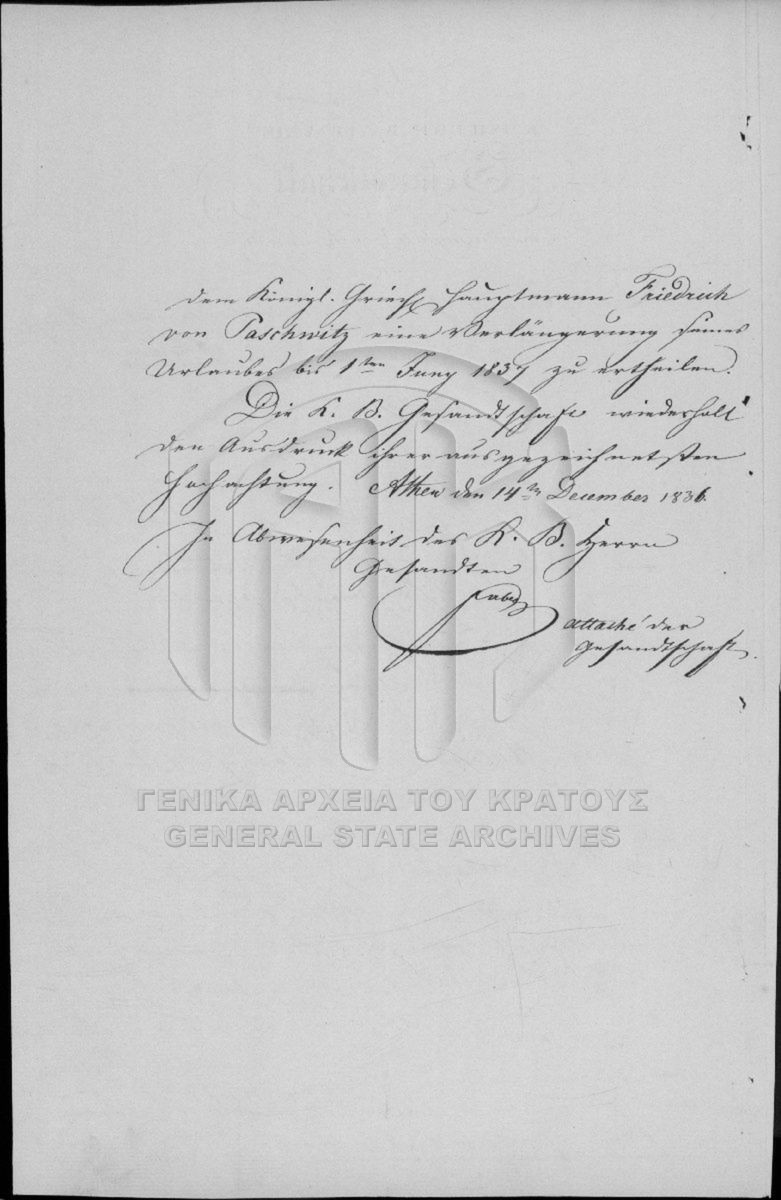 dem Königl. Griech. Hauptmann Friedrich
von Paschwitz eine Verlängerung seines
Urlaubes bis 1ten Juny 1837 zu ertheilen.
Die K. B. Gesandtschaft wiederholt
den Ausdruck ihrer ausgezeichnetsten
Hochachtung. Athen den 14ten December 1836.
In Abwesenheit des K. B. Herrn
Gesandten
attaché der
Gesandtschaft.
ΓΕΝΙΚΑ ΑΡΧΕΙΑ ΤΟΥ ΚΡΑΤΟΥΣ
GENERAL STATE ARCHIVES